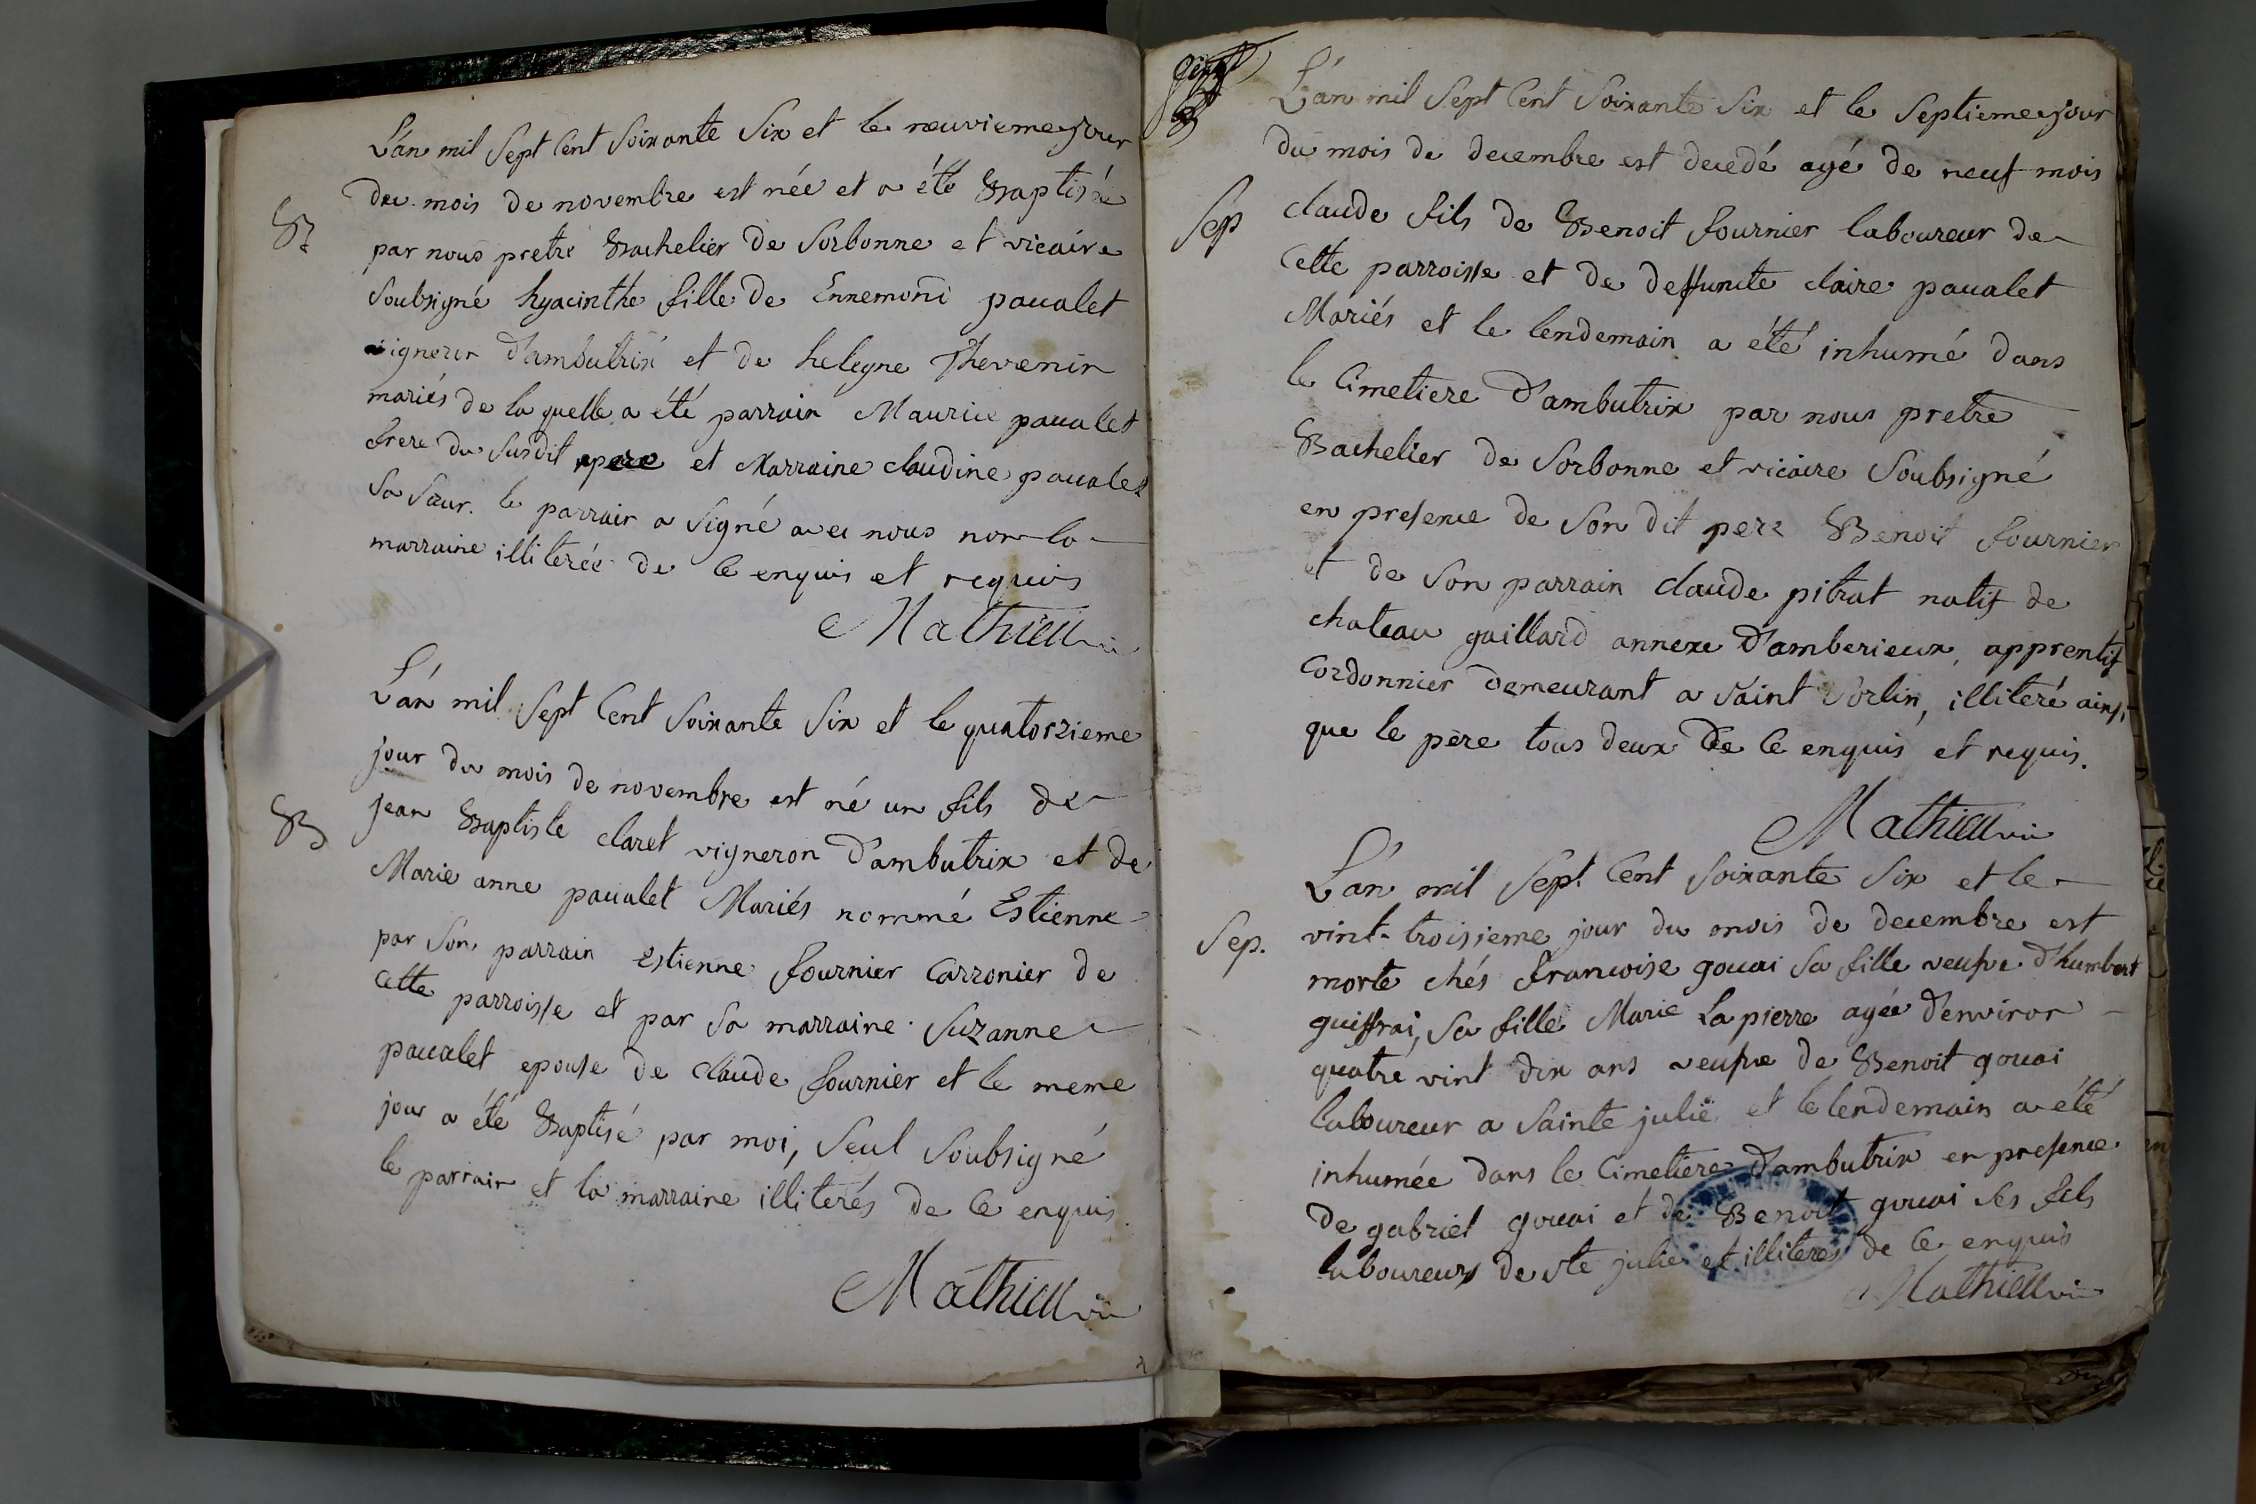 L'án mil Sept Cent Soixante Six et le neuvieme jour
du mois de novembre est née et a été Baptisée
B
par nous pretre Bachelier de Sorbonne et vicaire
Soubsigné hyacinthe fille de Ennemond paualet
vigneron d'ambutrix et de helegne Thevenin
mariés de la quelle a été parrain Maurice paualet
frere du Susdit pere et Marraine claudine paualet
Sa Sœur. le parrain a Signé avec nous non la
marraine illiterée de ce enquis et requis
Mathieu vic
L'án mil Sept Cent Soixante Six et le quatorzieme
jour du mois de novembre est né un fils de
B
jean Baptiste claret vigneron d'ambutrix et de
Marie anne paualet Mariés nommé Estienne
par Son parrain Estienne fournier Carronier de
Cette parroisse et par Sa marraine Suzanne
paualet epouse de claude fournier et le meme
jour a été Baptisé par moi, Seul Soubsigné
le parrain et la marraine illiterés de ce enquis.
Mathieu vic
L'án mil Sept Cent Soixante Six et le Septieme jour
du mois de decembre est decedé agé de neuf mois
Sep
claude fils de Benoit fournier laboureur de
Cette parroisse et de deffuncte claire paualet
Mariés et le lendemain a été inhumé dans
le Cimetiere d'ambutrix par nous pretre
Bachelier de Sorbonne et vicaire Soubsigné
en presence de Son dit pere Benoit fournier
et de Son parrain claude pitrat natif de
chateau gaillard annexe d'amberieux, apprentif
Cordonnier demeurant a Saint Sorlin, illiteré ainsi
que le père tous deux de ce enquis et requis.
Mathieu vic
L'án mil Sept Cent Soixante Six et le
Sep.
vint-troisieme jour du mois de decembre est
morte chés francoise gouai Sa fille veufve d'humbert
guiffrai, Sa fille Marie Lapierre agée d'environ
quatre vint dix ans veufve de Benoit gouai
laboureur a Sainte julie et le lendemain a été
inhumée dans le Cimetiere d'ambutrix en presence
de gabriel gouai et de Benoit gouai Ses fils
laboureurs de Ste julie et illiterés de ce enquis
Mathieu vic